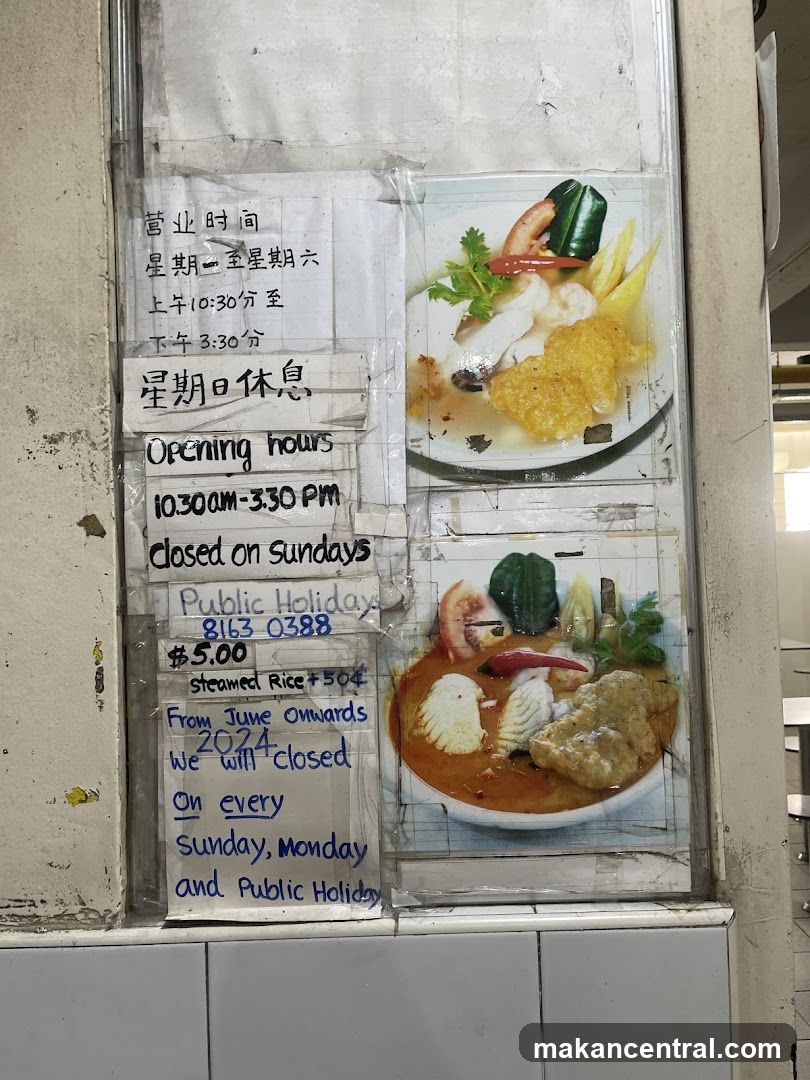 营业时间
星期一至星期六
上午10:30分至
下午3:30分
星期日休息
Opening hours
10.30am-3.30 PM
Closed on Sundays
Public Holidays
8163 0388
$5.00
Steamed Rice +50¢
From June Onwards
2024
We will closed
On every
Sunday, Monday
and Public Holiday
makancentral.com